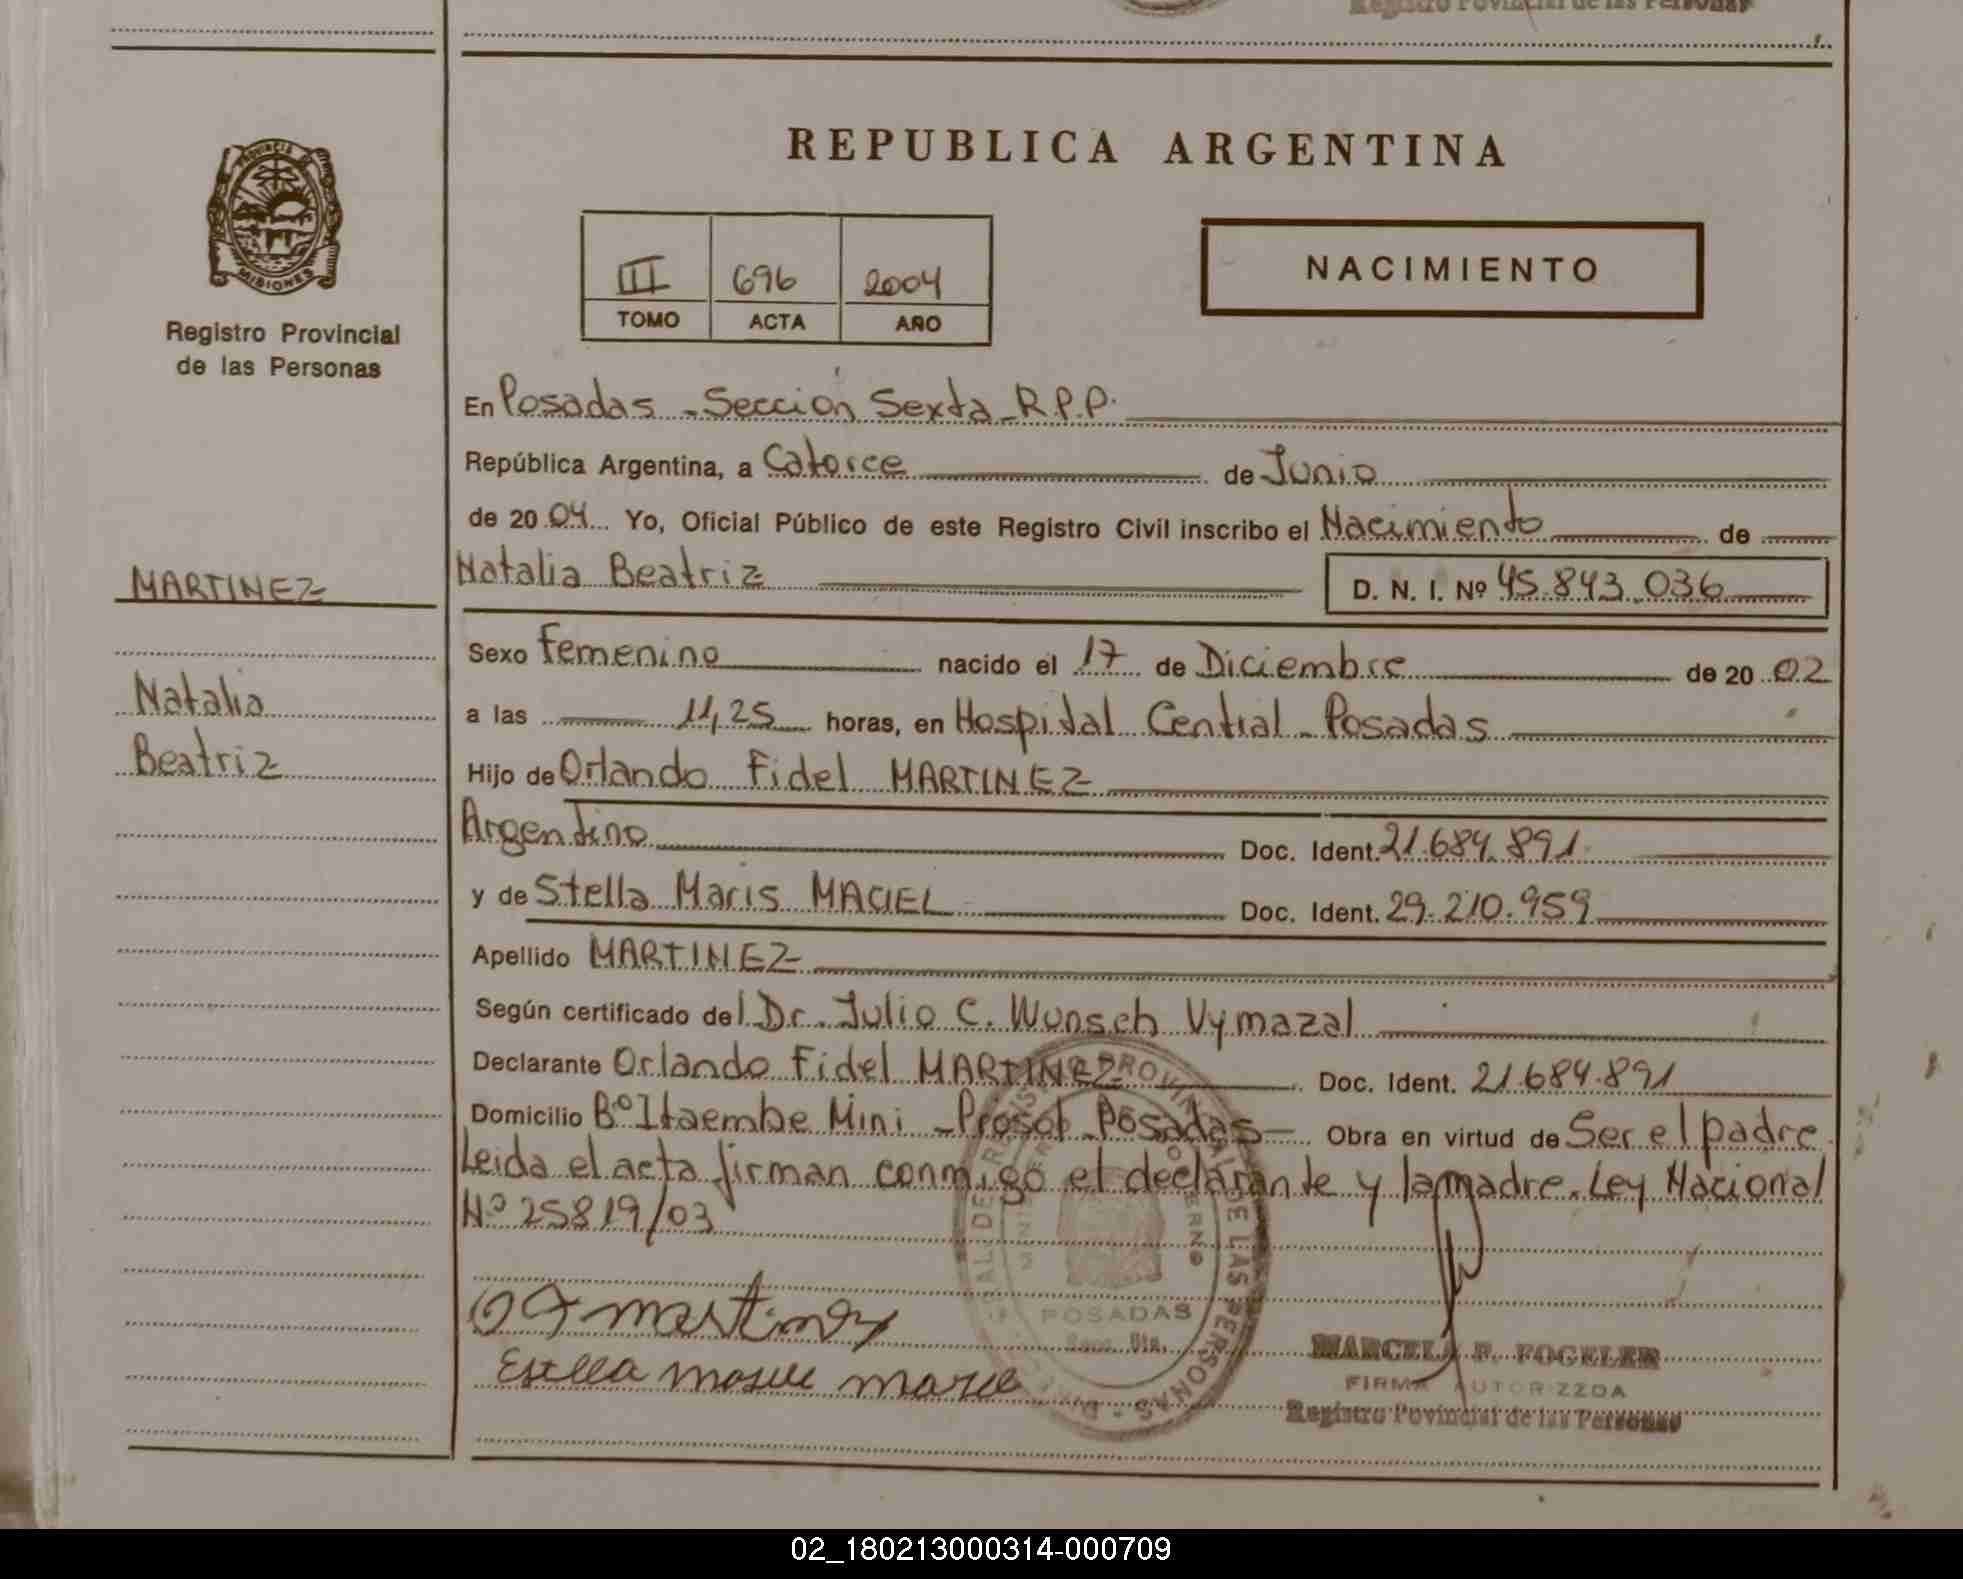 Registro Povincial de las Personas
REPUBLICA ARGENTINA
PROVINCIA DE
MISIONES
Registro Provincial
de las Personas
III 696 2004
TOMO ACTA AÑO
NACIMIENTO
En Posadas - Sección Sexta - R.P.P.
República Argentina, a Catorce de Junio
de 2004 Yo, Oficial Público de este Registro Civil inscribo el Nacimiento de
Natalia Beatriz D. N. I. Nº 45.843.036
MARTINEZ
Natalia
Beatriz
Sexo femenino nacido el 17 de Diciembre de 2002
a las 11,25 horas, en Hospital Central - Posadas
Hijo de Orlando Fidel MARTINEZ
Argentino Doc. Ident. 21.684.891
y de Stella Maris MACIEL Doc. Ident. 29.210.959
Apellido MARTINEZ
Según certificado del Dr. Julio C. Wunsch Vymazal
Declarante Orlando Fidel MARTINEZ Doc. Ident. 21.684.891
Domicilio Bº Itaembe Mini - Prosol - Posadas - Obra en virtud de Ser el padre
Leida el acta firman conmigo el declarante y la madre. Ley Nacional
Nº 25819/03
O F Martinez
POSADAS
Secc. 6ta.
MARCELA F. FOGELER
FIRMA AUTORIZZDA
Registro Povincial de las Personas
02_180213000314-000709